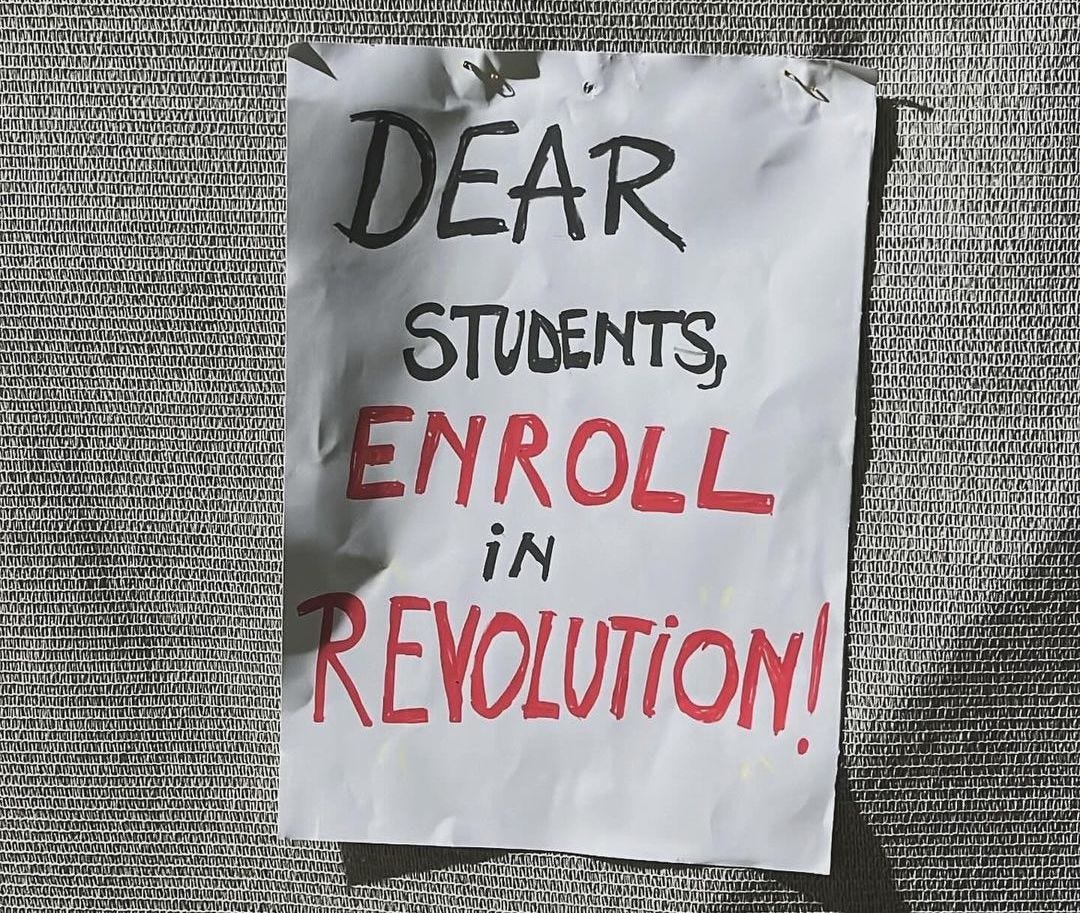 DEAR
STUDENTS,
ENROLL
iN
REVOLUTiON!